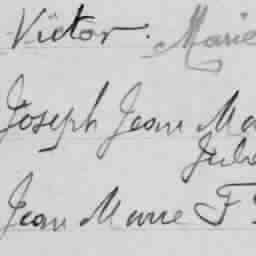 Victor. Marie
Joseph Jean Ma
Jule
Jean Marie F